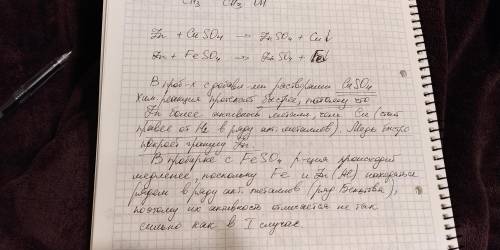 CH₃ CH₃
Zn + CuSO₄ → ZnSO₄ + Cu↓
Zn + FeSO₄ → ZnSO₄ + Fe↓
В проб-х с добавл-ем раствором CuSO₄
хим. реакция протекает быстрее, потому что
Zn более активный металл, чем Cu (стоит
правее от H₂ в ряду акт. металлов). Медь быстро
покроет гранулу Zn.
В пробирке с FeSO₄ р-ция происходит
медленнее, поскольку Fe и Zn (Al) находятся
рядом в ряду акт. металлов (ряд Бекетова),
поэтому их активность отличается не так
сильно как в I случае.